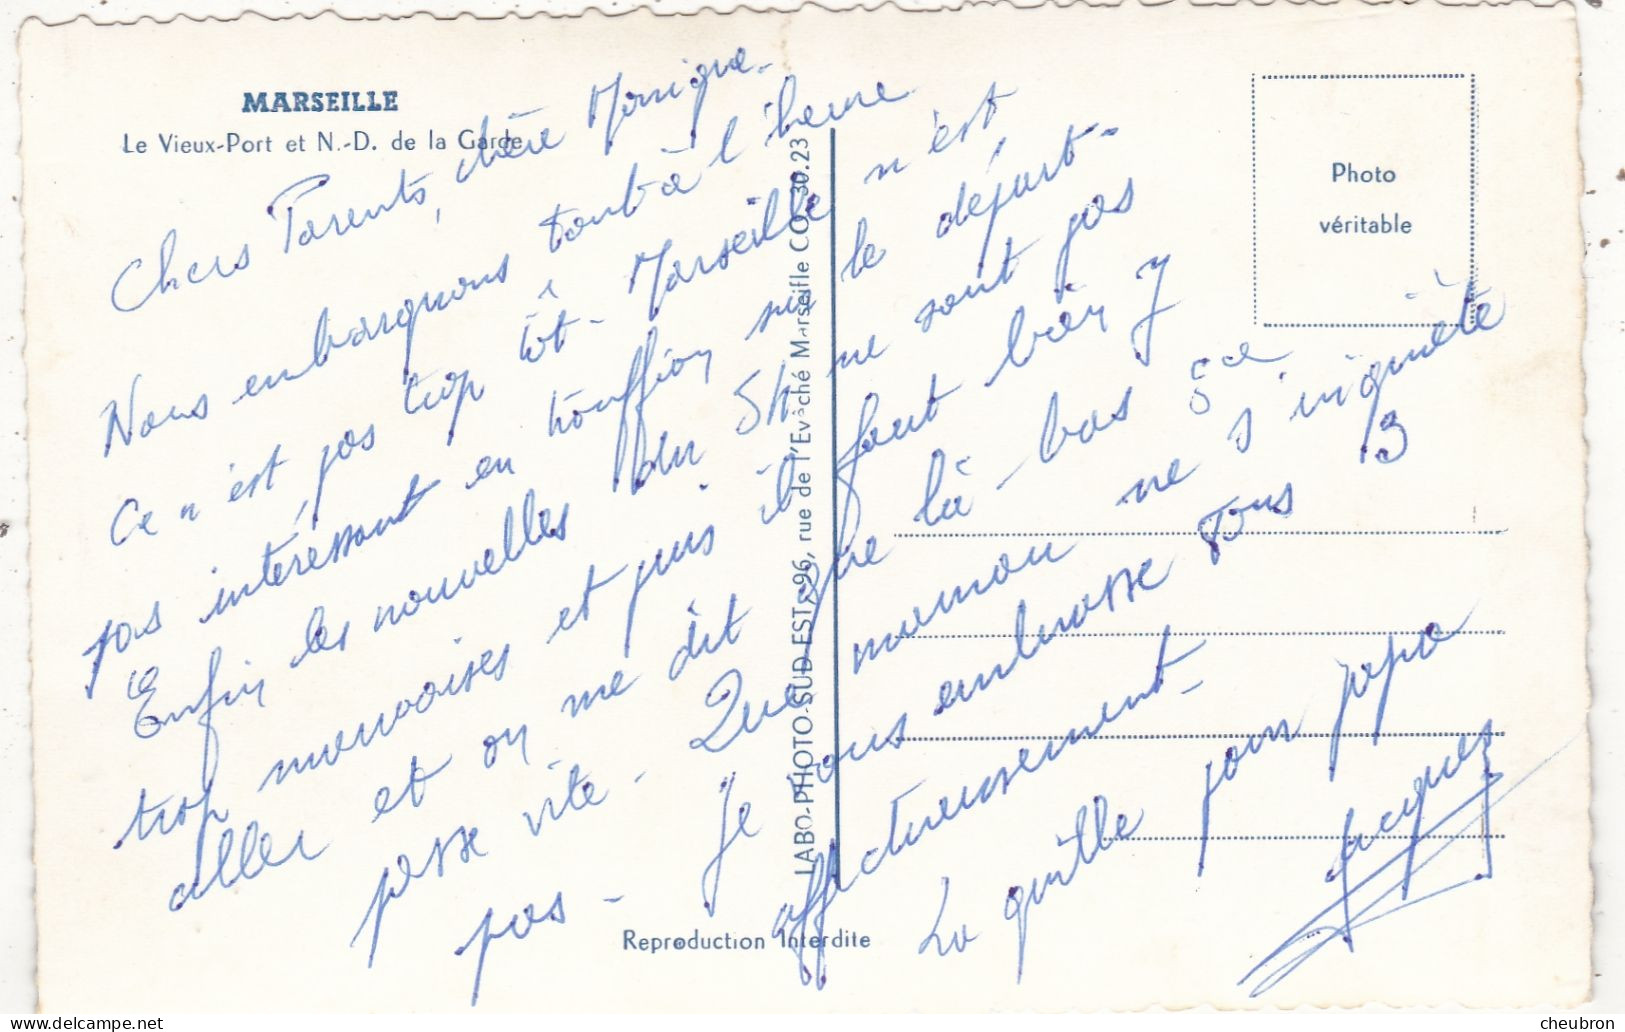 MARSEILLE
Le Vieux-Port et N.-D. de la Garde
Chers Parents, chère Monique.
Nous embarquons tout à l'heure
ce n'est pas trop tôt - Marseille n'est
pas intéressant en touffion sur le départ -
Enfin les nouvelles du 5h ne sont pas
trop mauvaises et puis il faut bien y
aller et on me dit que là-bas ça
passe vite - Que maman ne s'inquiète
pas - Je vous embrasse tous 3
affectueusement -
La quille pour papa
Jacques
Photo
véritable
LABO-PHOTO-SUD-EST, 96, rue de l'Evêché Marseille CO. 30.23
Reproduction Interdite
cheubron